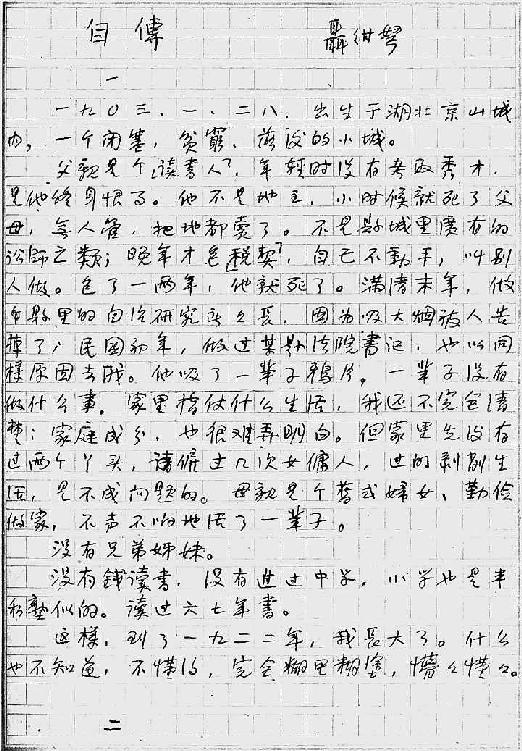 自傳 聶紺弩
一
一九０三．一．二八．出生于湖北京山城
内，一个闭塞，貧窮，落後的小城。
父親是个讀書人，年輕时没有考取秀才，
是他終身恨事。他不是地主，小时候就死了父
母，無人管，把地都賣了。不是縣城里慣有的
訟師之類；晚年才包税契，自己不動手，叫别
人做。包了一兩年，他就死了。满清末年，做
过縣里的自治研究所所長，因为吸大烟被人告
掉了；民国初年，做过某縣法院書记，也以同
樣原因去职。他吸了一輩子鴉片，一輩子没有
做什么事。家里指仗什么生活，我还不完全清
楚；家庭成分，也很难弄明白。但家里先後有
过兩个丫头，請僱过几次女傭人，过的剥削生
活，是不成问题的。母親是个舊式婦女、勤儉
做家，不声不响地活了一輩子。
没有兄弟姊妹。
没有錢讀書，没有进过中学，小学也是半
私塾似的。讀过六七年書。
这樣，到了一九二二年，我長大了。什么
也不知道，不懂得，完全糊里糊塗，懵々懂々。
二